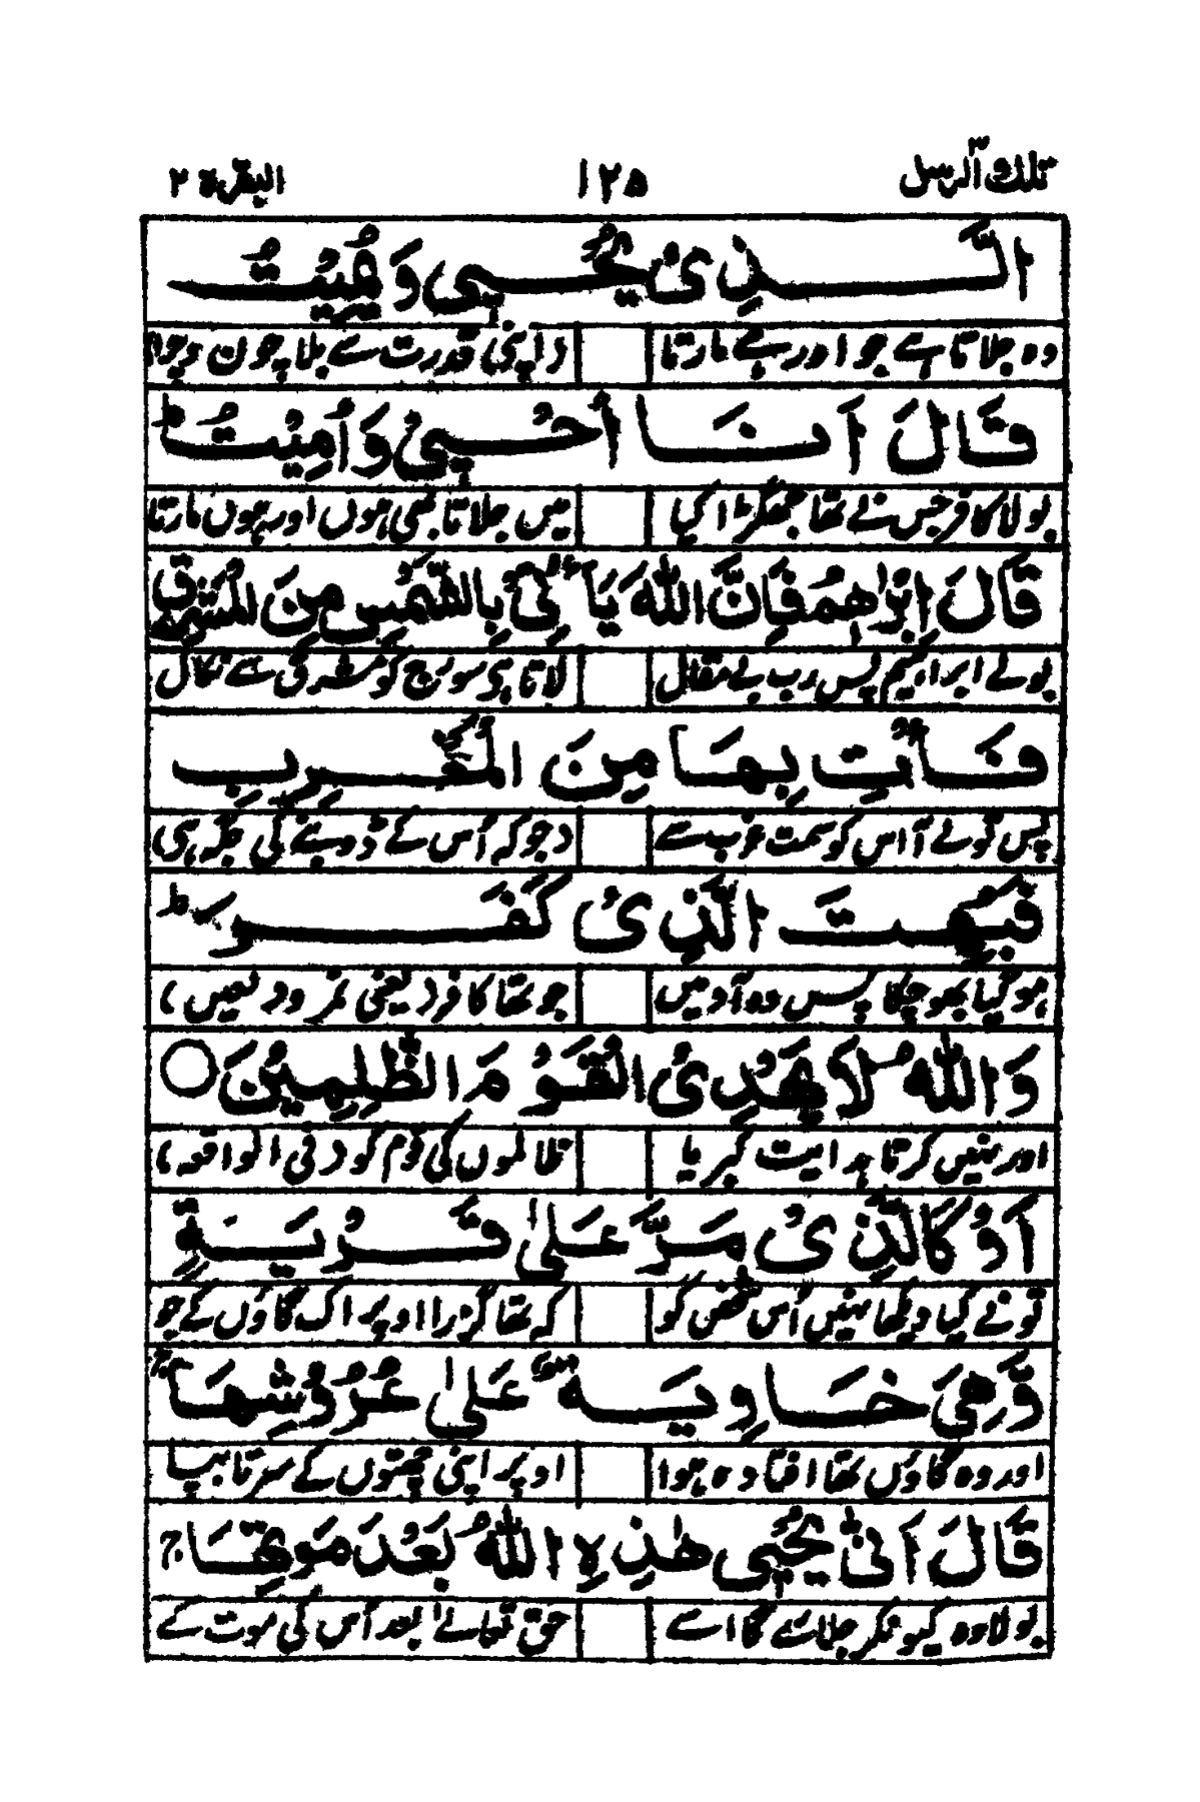 تلك الرسل ٣ ١٢٥ البقرة ٢
الَّذِىْ يُحْيِىْ وَيُمِيْتُ
وہ جلاتا ہے جو اور ہے مارتا (اپنی قدرت سے بلا چون وچرا)
قَالَ اَنَا اُحْيِىْ وَاُمِيْتُ ؕ
بولا کافر جس نے تھا جھگڑا کیا میں جلاتا بھی ہوں اور ہوں مارتا
قَالَ اِبْرٰهٖمُ فَاِنَّ اللّٰهَ يَاْتِىْ بِالشَّمْسِ مِنَ الْمَشْرِقِ
بولے ابراہیم پس رب بے مقال لاتا ہی سورج کو مشرق سے نکال
فَاْتِ بِهَا مِنَ الْمَغْرِبِ
پس تو لے آ اس کو سمت غرب سے (جو کہ اُس کے ڈوبنے کی جگہ ہی
فَبُهِتَ الَّذِىْ كَفَرَ ؕ
ہو گیا بھوچکا پس وہ آدمیں جو تھا کافر (یعنی نمرود لعیں)
وَاللّٰهُ لَا يَهْدِى الْقَوْمَ الظّٰلِمِيْنَ ○
اور نہیں کرتا ہدایت کبریا ظالموں کی قوم کو (فی الواقعہ)
اَوْ كَالَّذِىْ مَرَّ عَلٰى قَرْيَةٍ
تو نے کیا دیکھا نہیں اُس شخص کو کہ تھا گزرا اوپر اک گاؤں کے جو
وَّهِىَ خَاوِيَةٌ عَلٰى عُرُوْشِهَا ۚ
اور وہ گاؤں تھا افتادہ ہوا اوپر اپنی چھتوں کے سرتا بپا
قَالَ اَنّٰى يُحْيِىْ هٰذِهِ اللّٰهُ بَعْدَ مَوْتِهَا ۚ
بولا وہ کیونکر جلائے گا اسے حق تعالےٰ بعد اُس کی موت کے